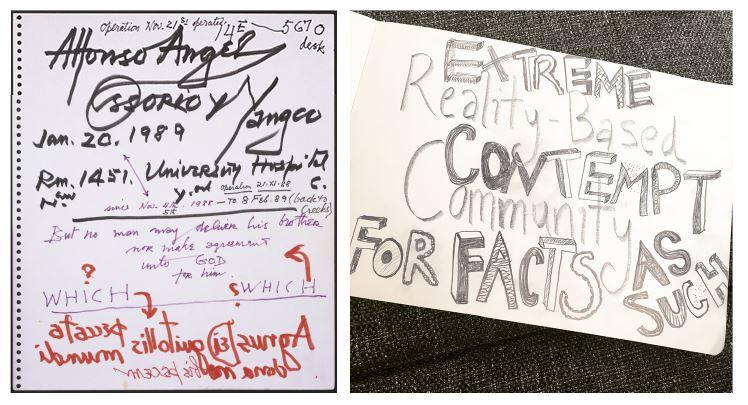 Operation Nov. 21st
14E — 5670
desk
Alfonso Angel
Ossorio y Yangco
Jan. 20. 1989
Rm. 1451. University Hospital
operation 21.XI.88
since Nov. 1988 — TO 8 Feb. 89 (back to
Creeks)
But no man may deliver his brother
nor make agreement
unto GOD
for him.
?
WHICH ? WHICH
Agnus Dei qui tollis peccata
mundi
dona nobis pacem
EXTREME
Reality-Based
CONTEMPT
Community
FOR FACTS AS
SUCH